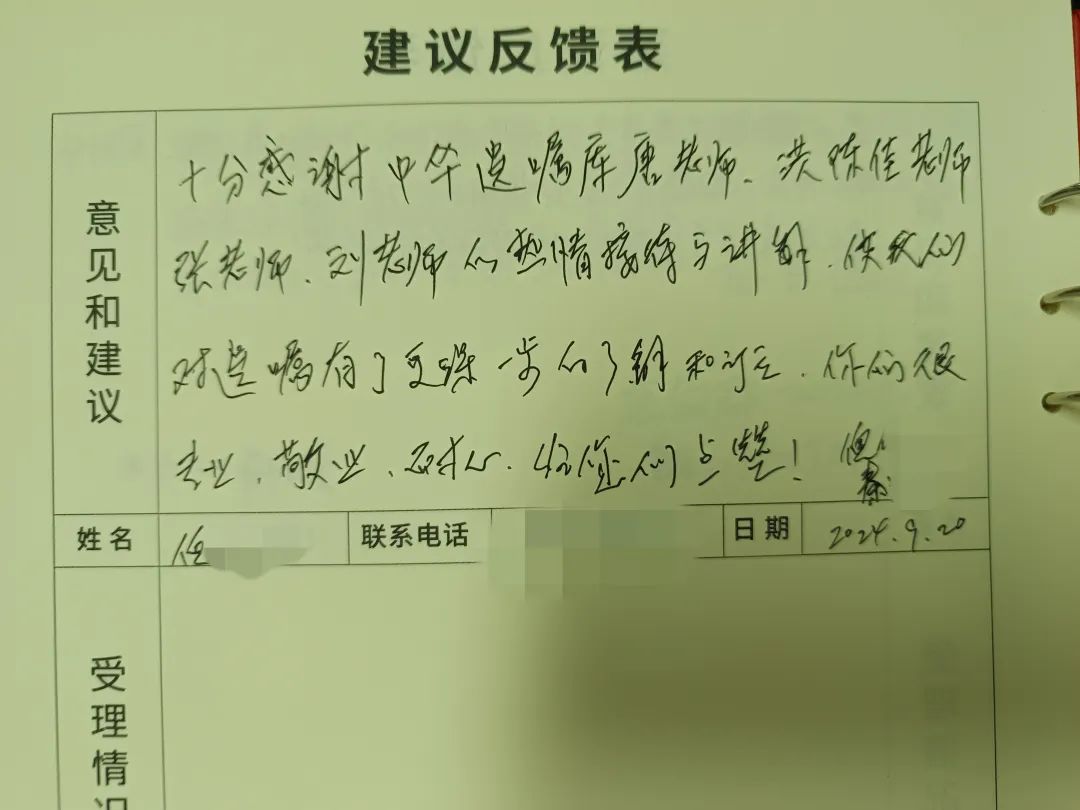 建议反馈表
意见和建议
十分感谢中华遗嘱库唐老师、洪陈佳老师
张老师、刘老师的热情接待与讲解，使我们
对遗嘱有了更深一步的了解和订立，你们很
专业、敬业、耐心，给您们点赞！
姓名
任
联系电话
日期
2024.9.20
受理情况